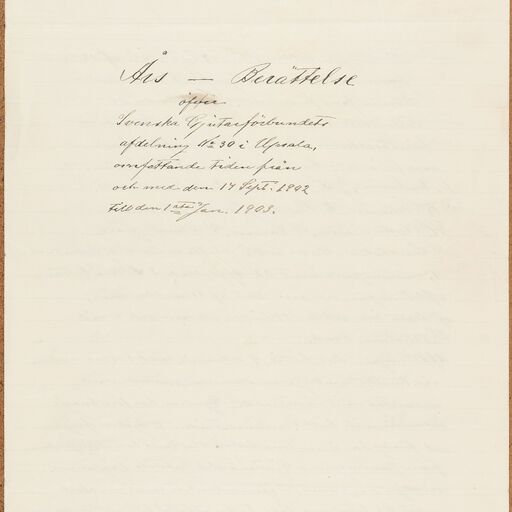 Års — Berättelse
öfver
Svenska Gjutarförbundets
afdelning No 30 i Upsala,
omfattande tiden från
och med den 14 Sept. 1902
till den 1sta Jan. 1903.